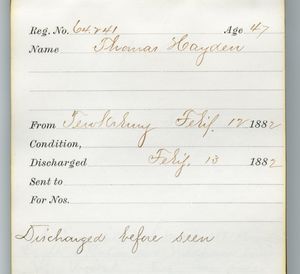 Reg. No. 64241 Age 47
Name Thomas Hayden
From Tewksbury Feb'y. 12 1882
Condition,
Discharged Feb'y. 13 1882
Sent to
For Nos.
Discharged before seen